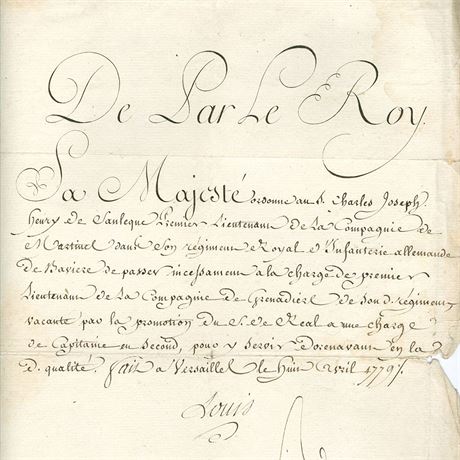 De Par Le Roy.
Sa Majesté ordonne au S. Charles Joseph
henry de Sanleque Premier Lieutenant de La Compagnie de
Martinel dans son régiment Royal d'Infanterie allemande
de Baviere de passer incessament à la charge de premier
Lieutenant de La Compagnie de Grenadiers de son d. régiment
vacante par la promotion du S. de Real a une charge
de Capitaine en Second, pour y Servir dorenavant en la
d. qualité. fait a Versailles le huit avril 1779.
Louis